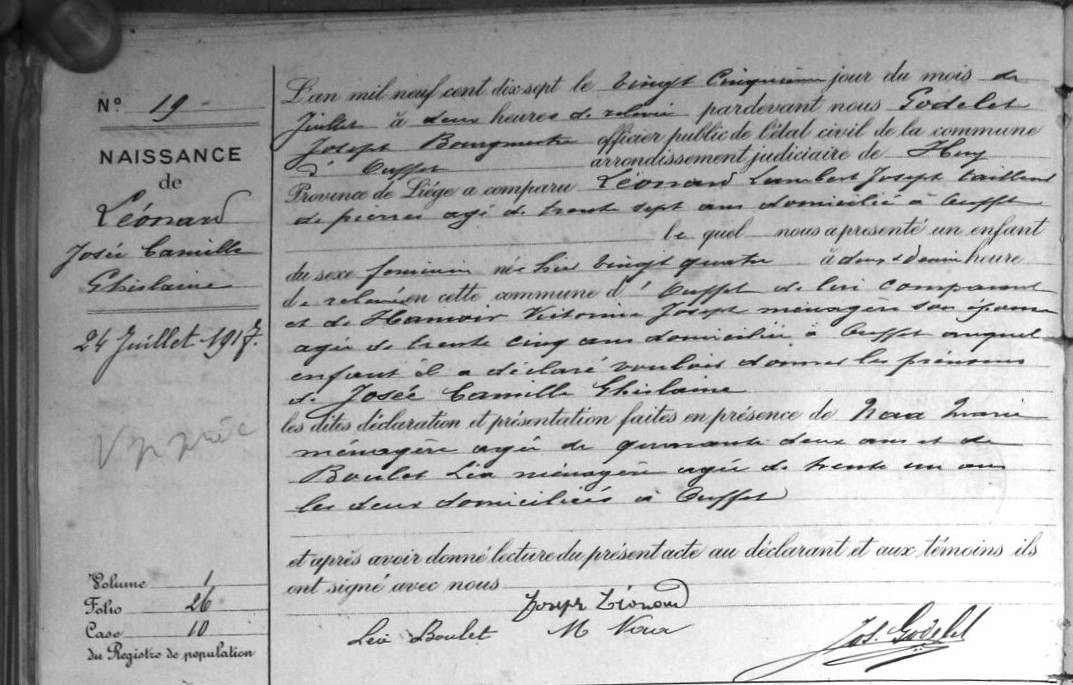 N° 19
NAISSANCE
de
Léonard
Josée Camille
Ghislaine
24 Juillet 1917.
Volume 1
Folio 26
Case 10
du Registre de population
L'an mil neuf cent dix sept le vingt cinquième jour du mois de
Juillet à deux heures de relevée pardevant nous Godelet
Joseph Bourgmestre officier public de l'état civil de la commune
d'Ouffet arrondissement judiciaire de Huy
Province de Liége a comparu Léonard Lambert Joseph tailleur
de pierres agé de trente sept ans domicilié à Ouffet
le quel nous a présenté un enfant
du sexe feminin née hier vingt quatre à deux & demie heure
de relevée en cette commune d'Ouffet de lui comparant
et de Hamoir Victorine Joseph ménagère son épouse
agée de trente cinq ans domiciliée à Ouffet auquel
enfant il a déclaré vouloir donner les prénoms
de Josée Camille Ghislaine
les dites déclaration et présentation faites en présence de Marie
ménagère agée de quarante deux ans et de
Boulet Léa ménagère agée de trente un ans
les deux domiciliées à Ouffet
et après avoir donné lecture du présent acte au déclarant et aux témoins ils
ont signé avec nous
Joseph Léonard
Léa Boulet M
Jos. Godelet